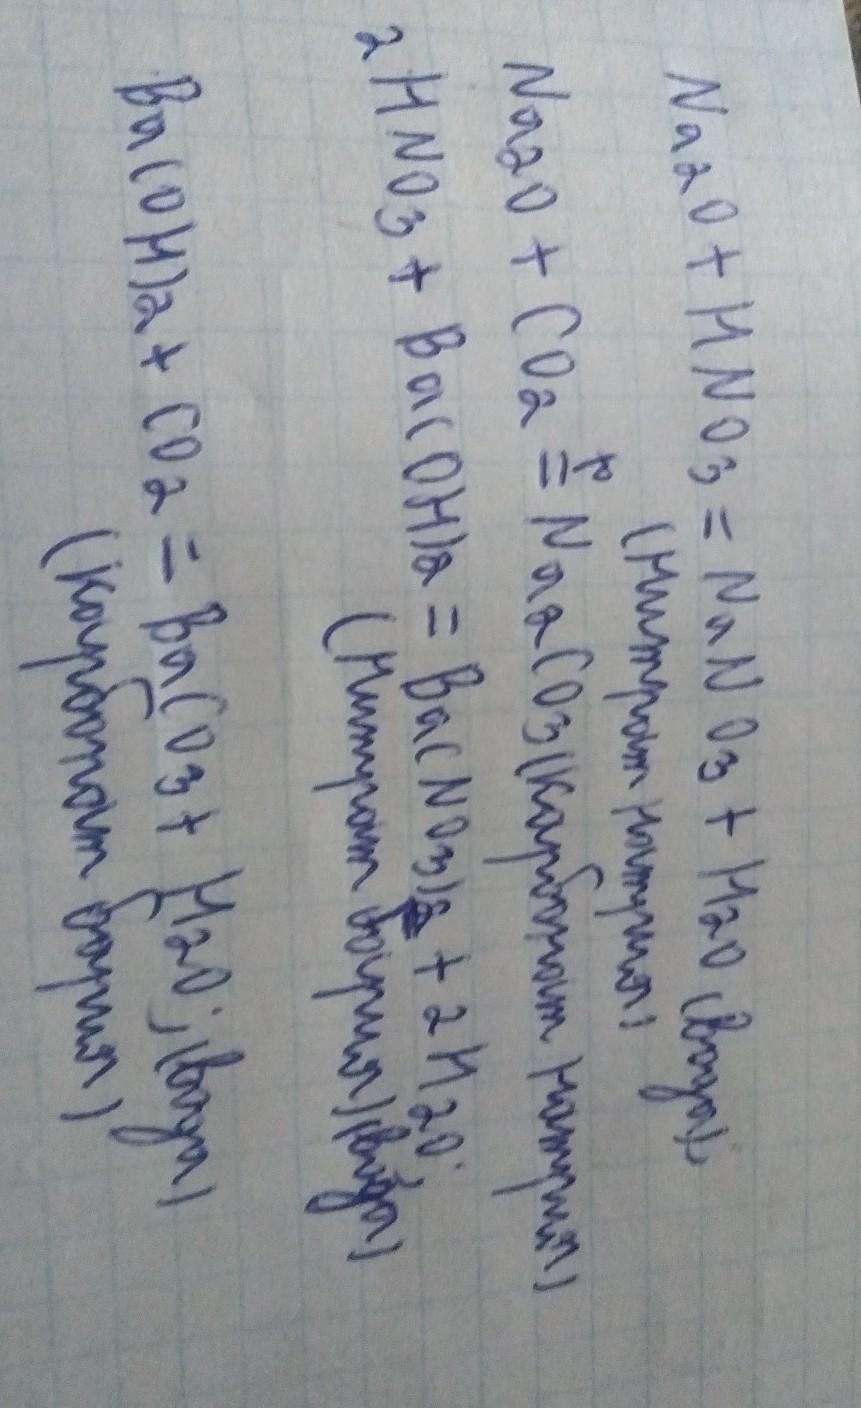 Na2O + HNO3 = NaNO3 + H2O (вода);
(Нитрат натрия)
Na2O + CO2 = Na2CO3 (Карбонат натрия)
2HNO3 + Ba(OH)2 = Ba(NO3)2 + 2H2O;
(Нитрат бария) (вода)
Ba(OH)2 + CO2 = BaCO3 + H2O; (вода)
(Карбонат бария)